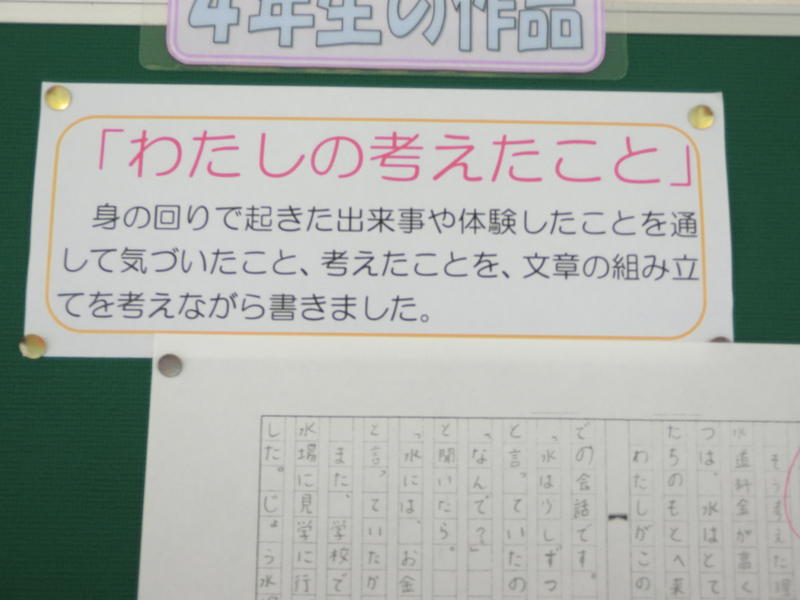 4年生の作品
「わたしの考えたこと」
身の回りで起きた出来事や体験したことを通
して気づいたこと、考えたことを、文章の組み立
てを考えながら書きました。
そう考えた理
水道料金が高く
つは、水はとて
たちのもとへ来
わたしがこの
での会話です。
「水は少しずつ
と言っていたの
「なんで?」
と聞いたら。
「水には、お金
と言っていたか
また、学校で
水場に見学に行
した。じょう水